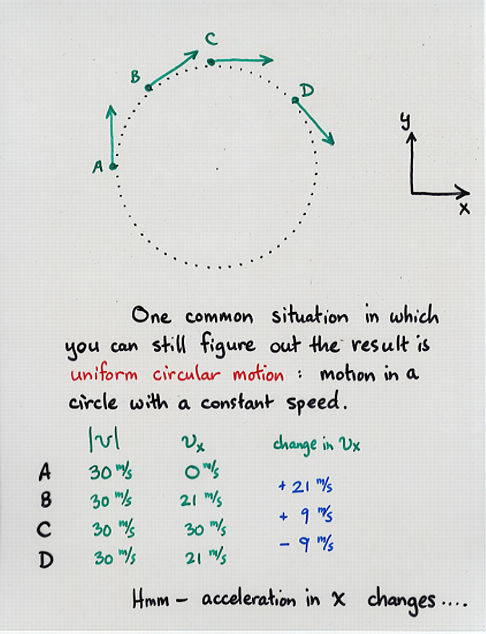 C
B
D
A
y
x
One common situation in which
you can still figure out the result is
uniform circular motion : motion in a
circle with a constant speed.
|v| vx change in vx
A 30 m/s 0 m/s
+ 21 m/s
B 30 m/s 21 m/s
+ 9 m/s
C 30 m/s 30 m/s
- 9 m/s
D 30 m/s 21 m/s
Hmm - acceleration in x changes....